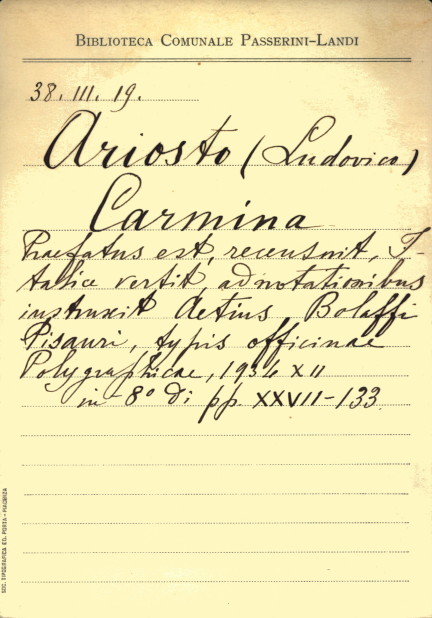 BIBLIOTECA COMUNALE PASSERINI-LANDI
38. III. 19.
Ariosto (Ludovico)
Carmina
Praefatus est, recensuit, I-
talice vertit, adnotationibus
instruxit Aetius Bolaffi
Pisauri, typis officinae
Polygraphicae, 1934 XII
in 8° di pp. XXVII-133
SOC. TIPOGRAFICA ED. PORTA - PIACENZA